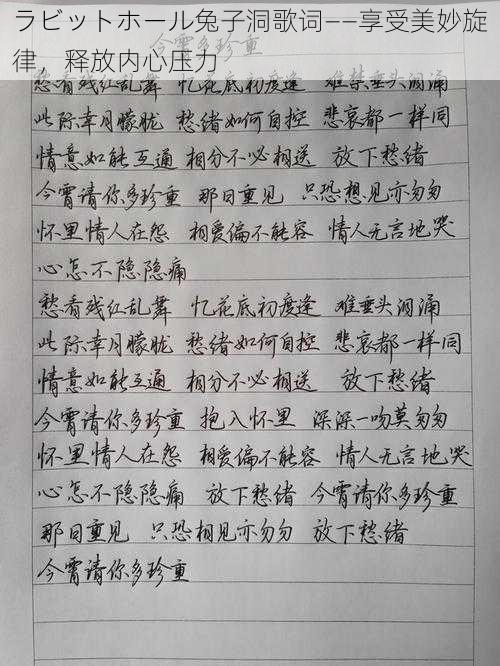 ラビットホール兔子洞歌词——享受美妙旋
律，释放内心压力
今霄多珍重
愁看残红乱舞 忆花底初度逢 难禁垂头泪涌
此际幸月朦胧 愁绪如何自控 悲哀都一样同
情意如能互通 相分不必相送 放下愁绪
今霄请你多珍重 那日重见 只恐想见亦匆匆
怀里情人在怨 相爱偏不能容 情人无言地哭
心怎不隐隐痛
愁看残红乱舞 忆花底初度逢 难垂头泪涌
此际幸月朦胧 愁绪如何自控 悲哀都一样同
情意如能互通 相分不必相送 放下愁绪
今霄请你多珍重 抱入怀里 深深一吻莫匆匆
怀里情人在怨 相爱偏不能容 情人无言地哭
心怎不隐隐痛 放下愁绪 今霄请你多珍重
那日重见 只恐相见亦匆匆 放下愁绪
今霄请你多珍重